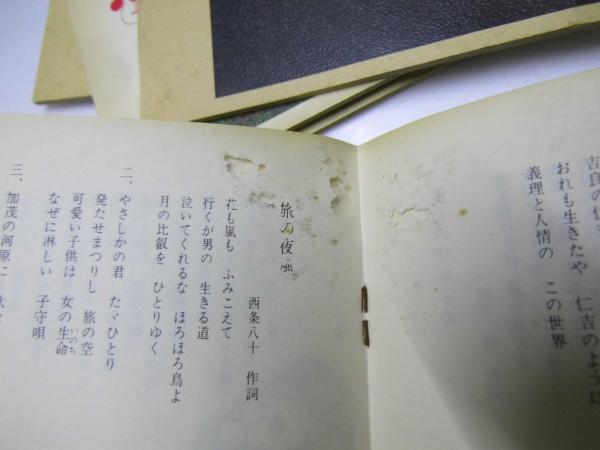 吉良の仁吉
おれも生きたや 仁吉のように
義理と人情の この世界
旅の夜風
西条八十 作詞
花も嵐も ふみこえて
行くが男の 生きる道
泣いてくれるな ほろほろ鳥よ
月の比叡を ひとりゆく
二、やさしかの君 たゞひとり
発たせまつりし 旅の空
可愛い子供は 女の生命
いのち
なぜに淋しい 子守唄
三、加茂の河原に